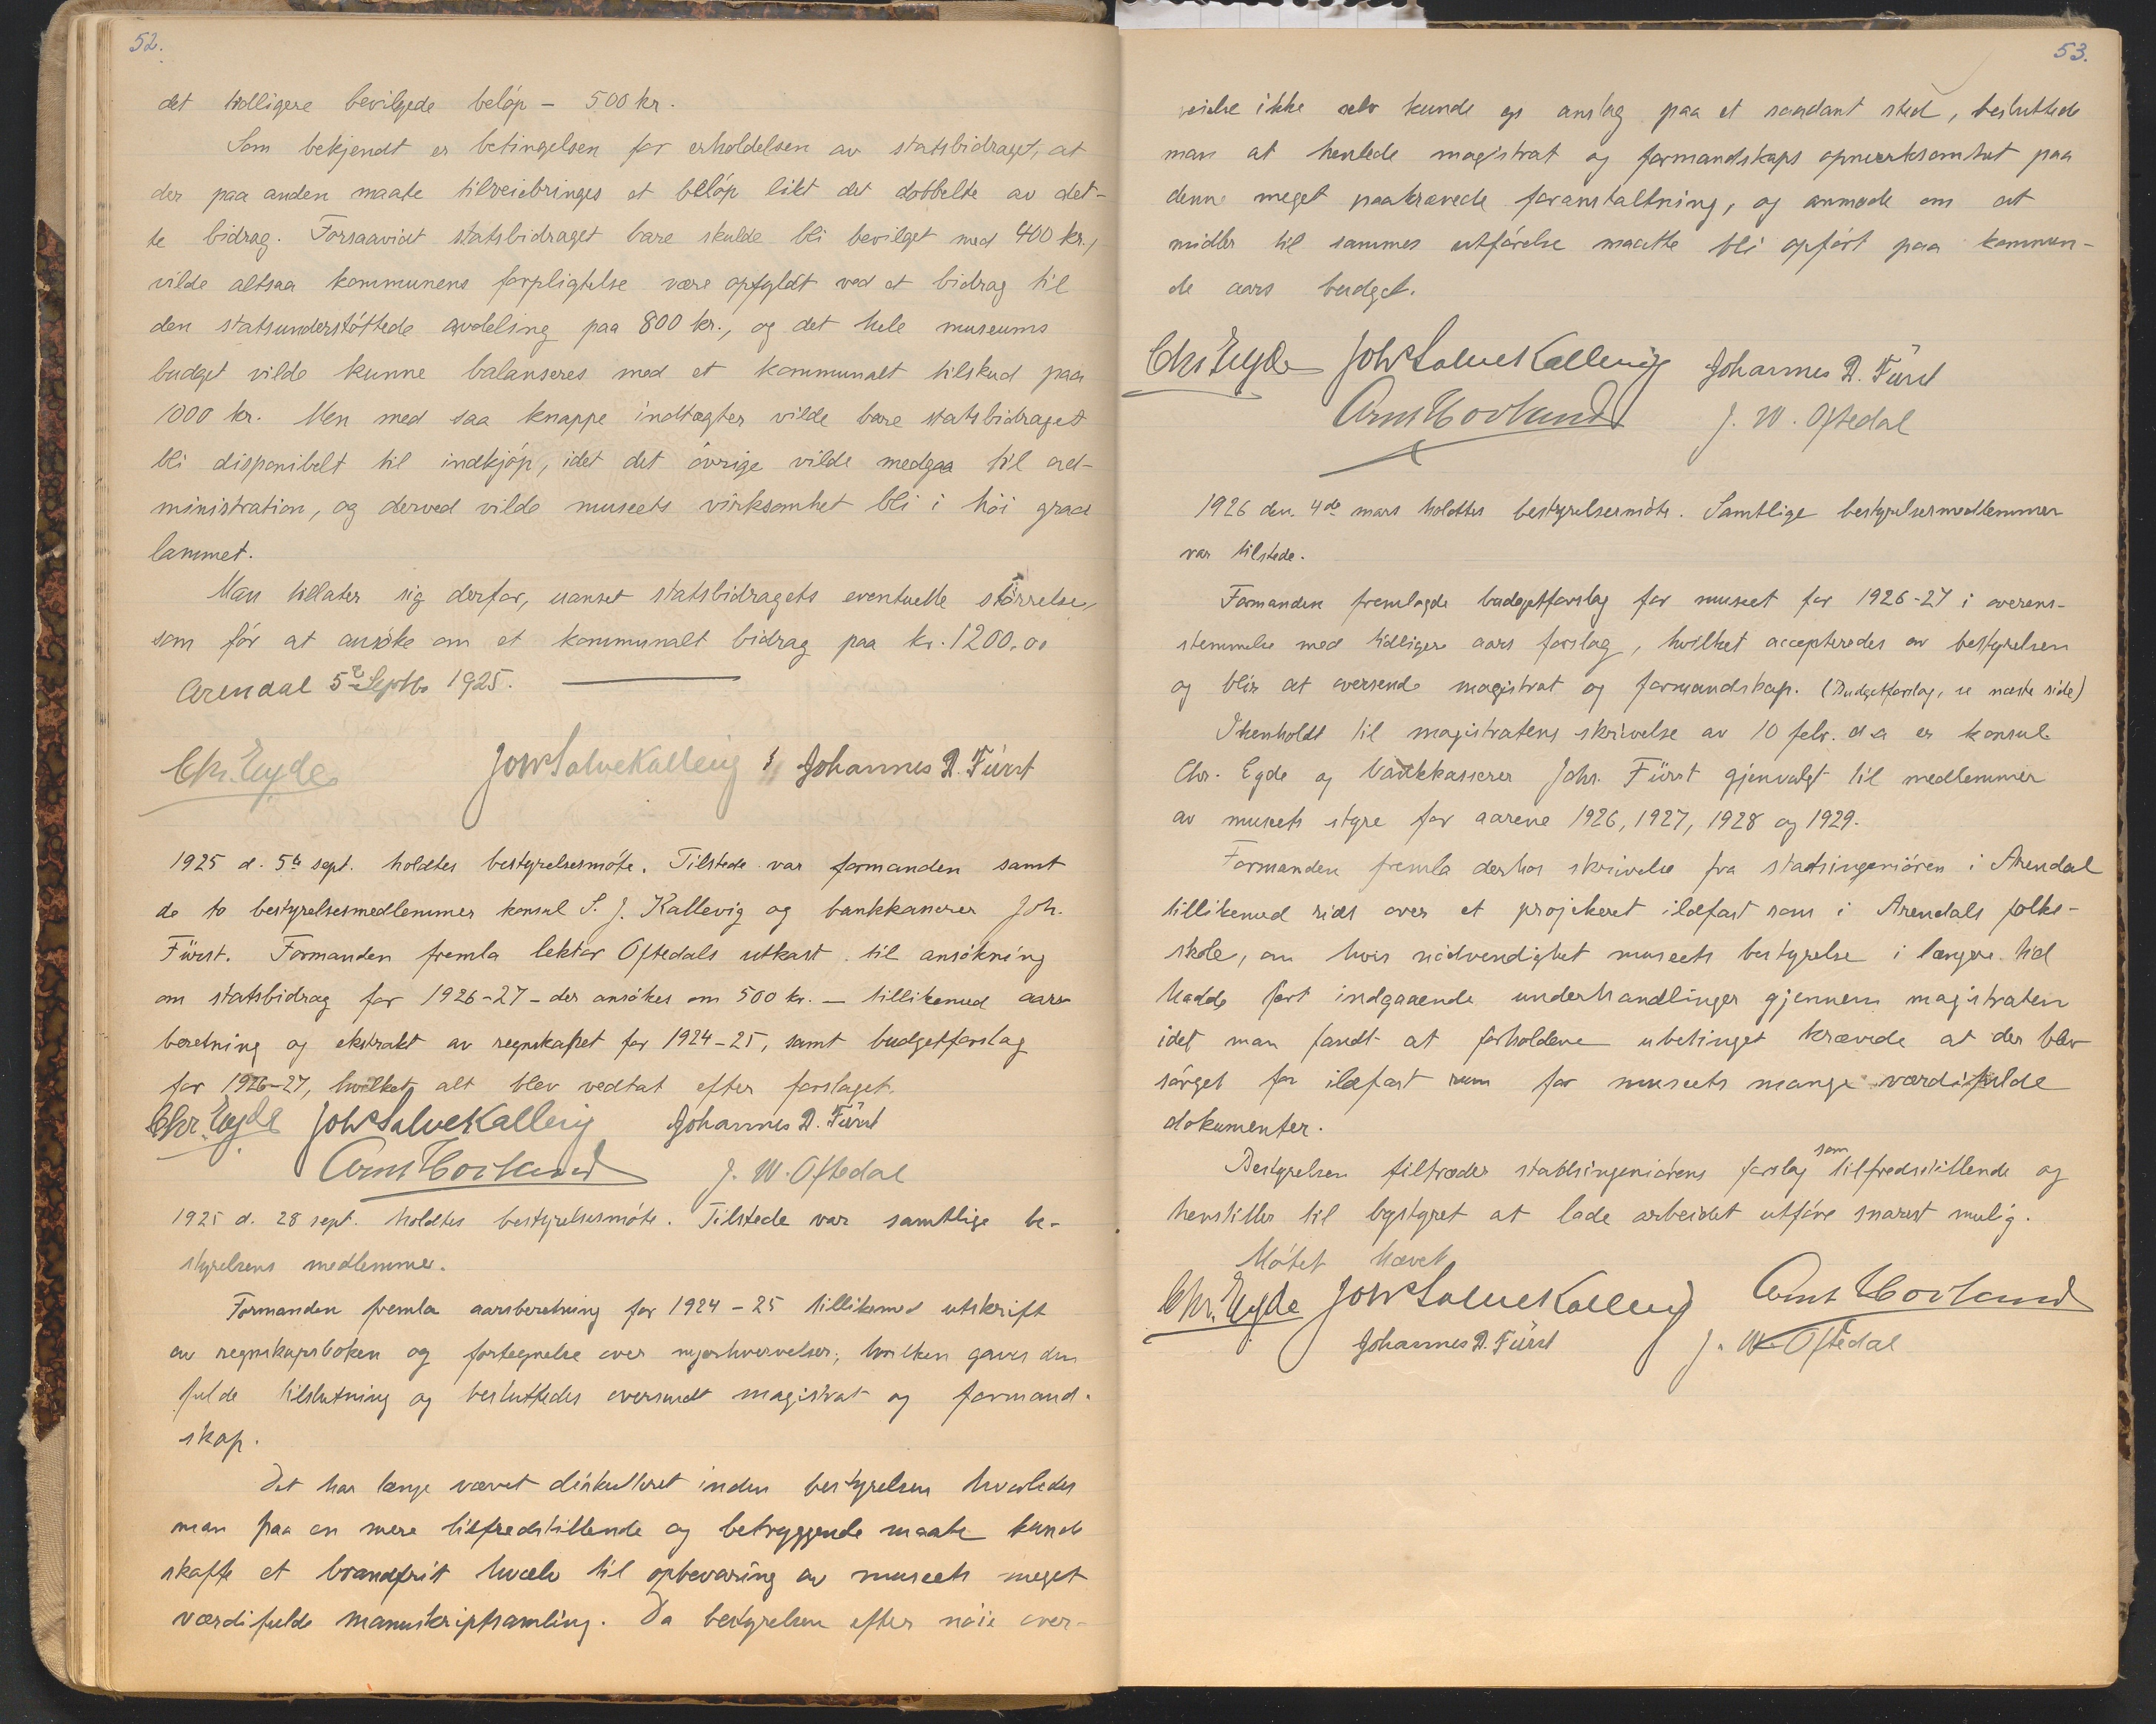 52.
det tidligere bevilgede beløp – 500 kr.
Som bekjendt er betingelsen for erholdelsen av statsbidraget, at
der paa anden maate tilveiebringes et beløp likt det dobbelte av det-
te bidrag. Forsaavidt statsbidraget bare skulde bli bevilget med 400 kr.,
vilde altsaa kommunens forpligtelse være opfyldt ved et bidrag til
den statsunderstøttede avdeling paa 800 kr., og det hele museums
budget vilde kunne balanseres med et kommunalt tilskud paa
1000 kr. Men med saa knappe indtægter vilde bare statsbidraget
bli disponibelt til indkjøp, idet det øvrige vilde medgaa til ad-
ministration, og derved vilde museets virksomhet bli i høi grad
lammet.
Man tillater sig derfor, uanset statsbidragets eventuelle størrelse,
som før at ansøke om et kommunalt bidrag paa kr. 1200.00
Arendal 5te Septbr 1925.
Chr. Eyde Joh Salve Kallevig Johannes D. Fürst
1925 d. 5te sept. holdtes bestyrelsesmøte. Tilstede var formanden samt
de to bestyrelsesmedlemmer konsul S. J. Kallevig og bankkasserer Joh.
Fürst. Formanden fremla lektor Oftedals utkast til ansøkning
om statsbidrag for 1926-27 – der ansøkes om 500 kr. – tillikemed aars-
beretning og ekstrakt av regnskapet for 1924-25, samt budgetforslag
for 1926-27, hvilket alt blev vedtat efter forslaget.
Chr. Eyde Joh Salve Kallevig Johannes D. Fürst
Arnt Hovland J. W. Oftedal
1925 d. 28 sept. holdtes bestyrelsesmøte. Tilstede var samtlige be-
styrelsens medlemmer.
Formanden fremla aarsberetning for 1924-25 tillikemed utskrift
av regnskapsboken og fortegnelse over nyerhvervelser, hvilken gaves den
fulde tilslutning og besluttedes oversendt magistrat og formand-
skap.
Det har længe været diskuteret inden bestyrelsen hvorledes
man paa en mere tilfredstillende og betryggende maate kunde
skaffe et brandfrit hvælv til opbevaring av museets meget
værdifulde manuskriptsamling. Da bestyrelsen efter nøie over-
53.
veielse ikke selv kunde gi anslag paa et saadant sted, besluttede
man at henlede magistrat og formandskaps opmerksomhet paa
denne meget paakrævede foranstaltning, og anmode om at
midler til sammes utførelse maatte bli opført paa kommen-
de aars budget.
Chr Eyde Joh Salve Kallevig Johannes D. Fürst
Arnt Hovland J. W. Oftedal
1926 den 4de mars holdtes bestyrelsesmøte. Samtlige bestyrelsesmedlemmer
var tilstede.
Formanden fremlagde budgetforslag for museet for 1926-27 i overens-
stemmelse med tidligere aars forslag, hvilket accepteredes av bestyrelsen
og blir at oversende magistrat og formandskap. (Budgetforslag, se næste side)
I henholdt til magistratens skrivelse av 10 febr. d.a er konsul
Chr. Eyde og bankkasserer Johs. Fürst gjenvalgt til medlemmer
av museets styre for aarene 1926, 1927, 1928 og 1929.
Formanden fremla derhos skrivelse fra stadsingeniøren i Arendal
tillikemed rids over et projekeret ildfast rom i Arendals folke-
skole, om hvis nødvendighet museets bestyrelse i længere tid
hadde ført indgaaende underhandlinger gjennem magistraten
idet man fandt at forholdene ubetinget krævede at der blev
sørget for ildfast rum for museets mange værdifulde
dokumenter.
Bestyrelsen tiltræder stadsingeniørens forslag som tilfredstillende og
henstiller til bystyret at lade arbeidet utføre snarest mulig.
Møtet hævet
Chr. Eyde Joh Salve Kallevig Arnt Hovland
Johannes D. Fürst J. W. Oftedal